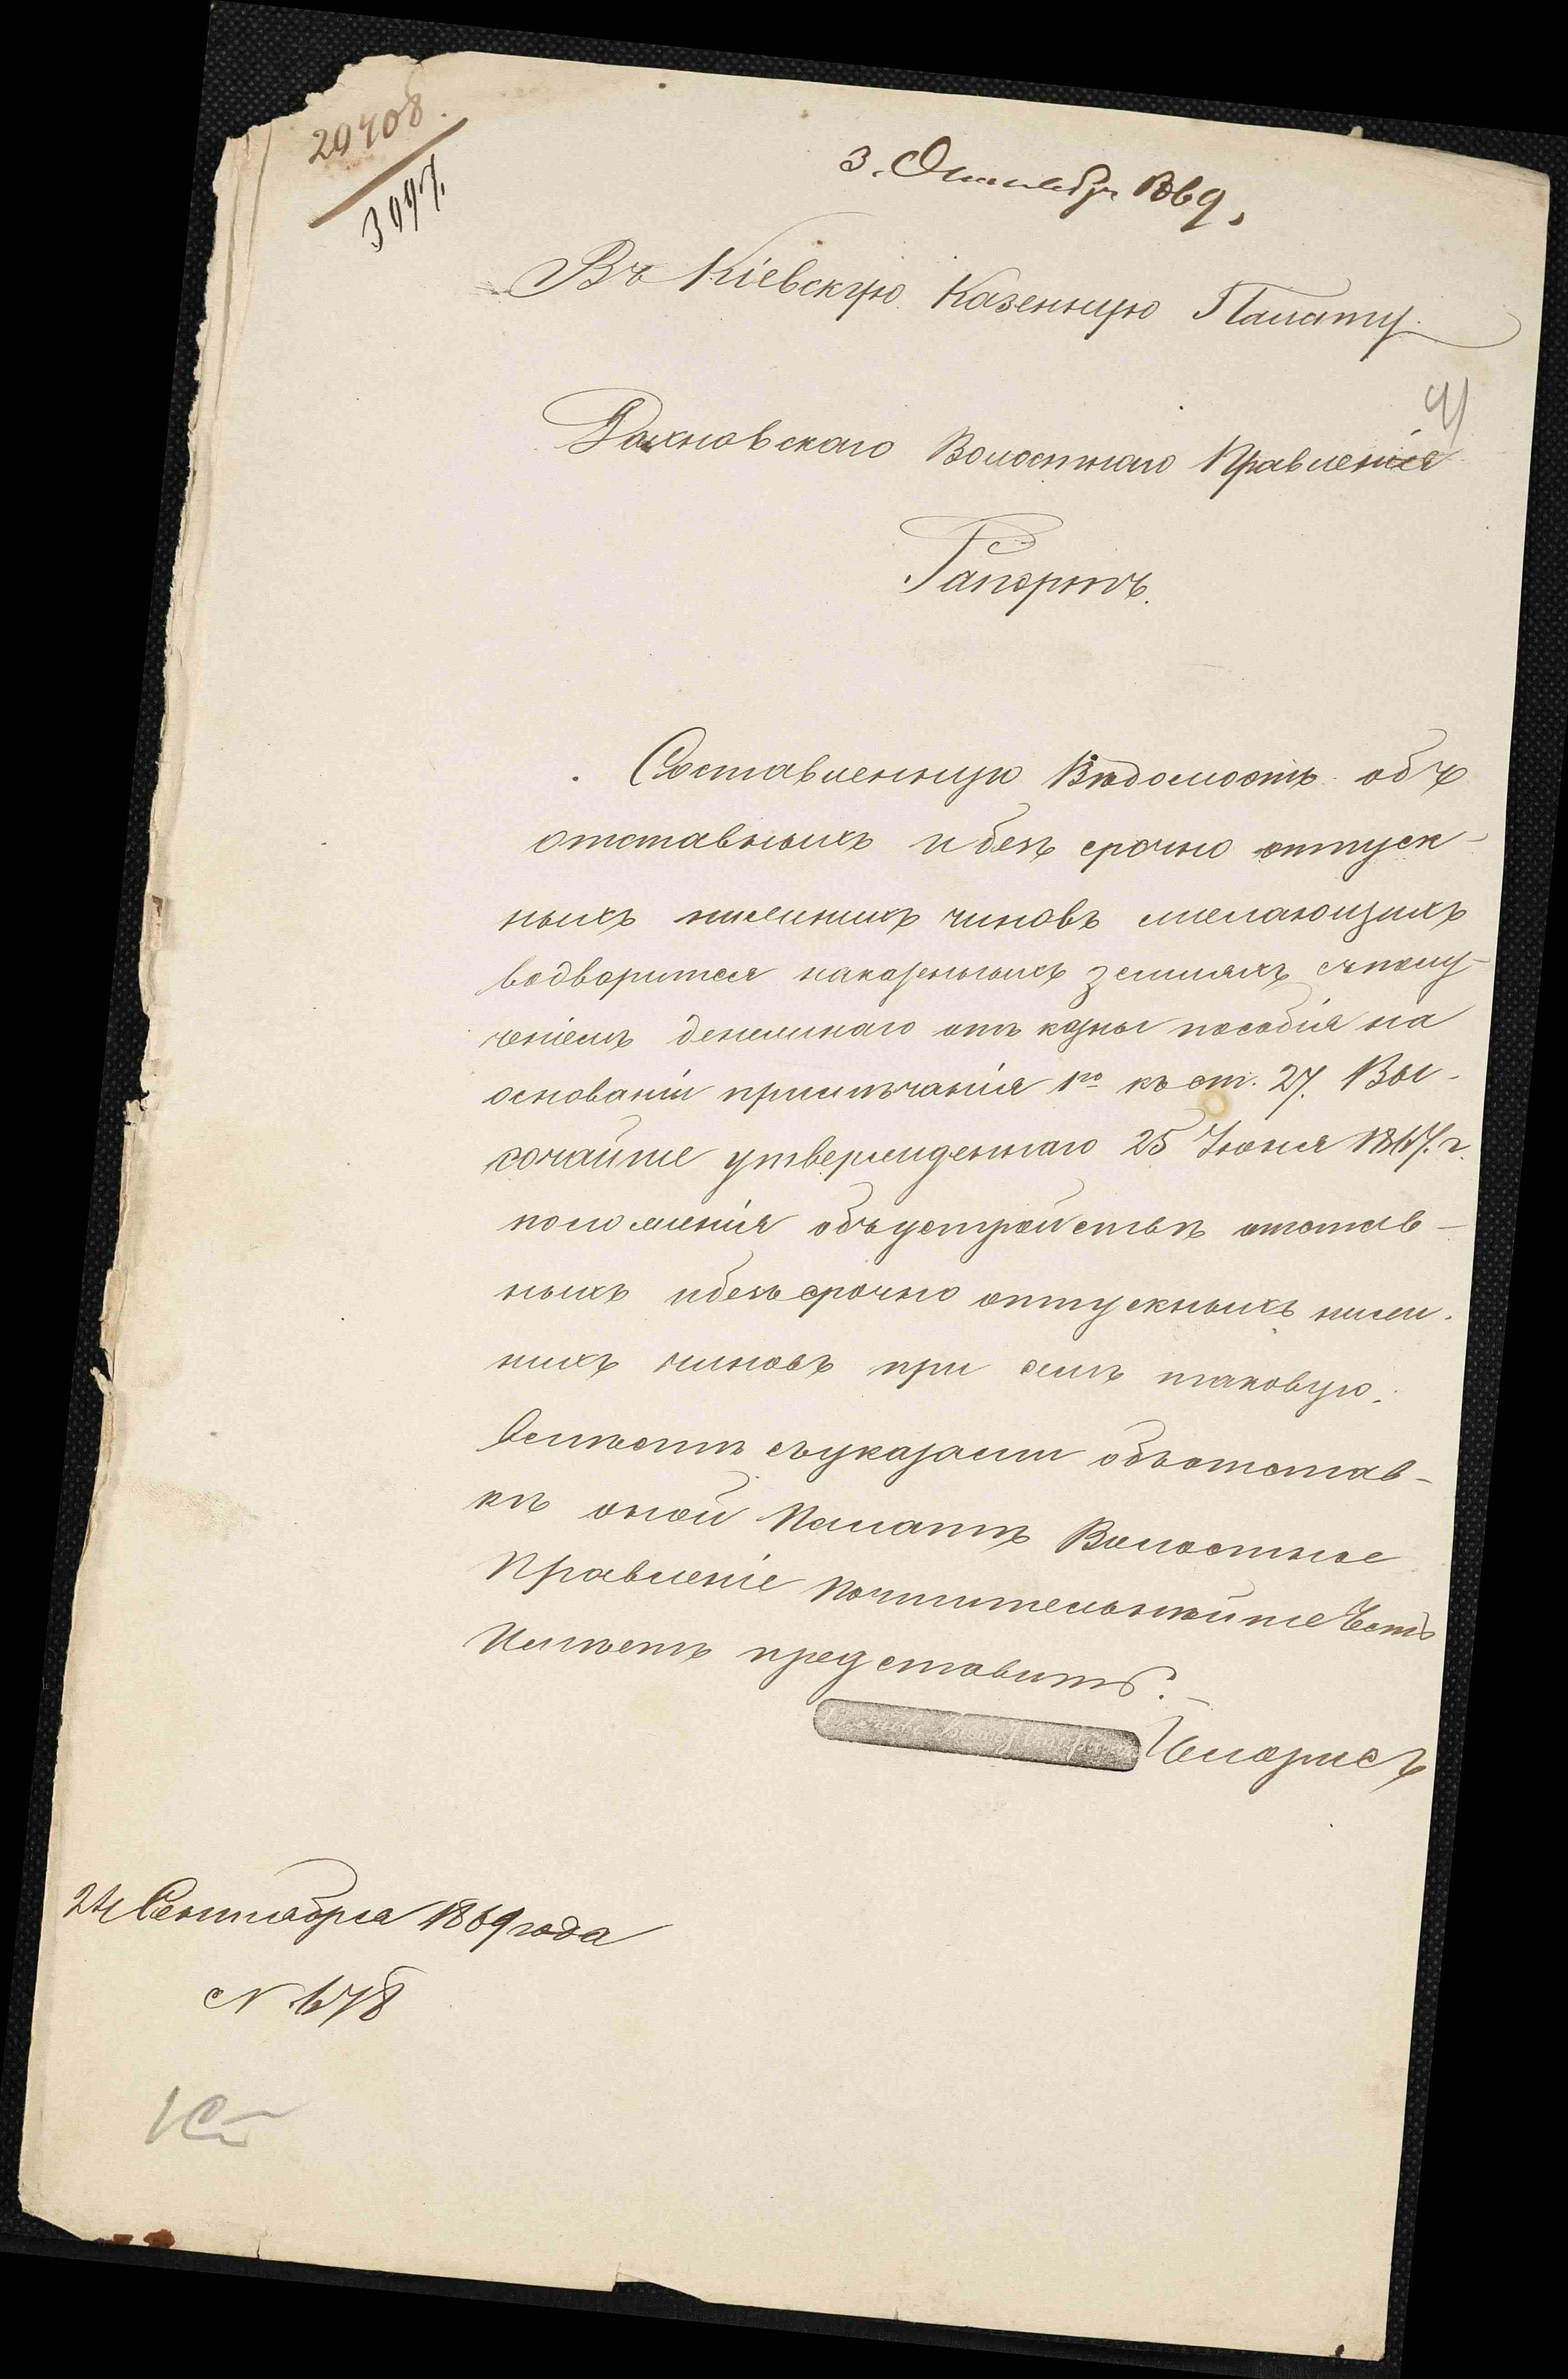 20408.
3997.
3. Октября 1869,
Въ Кіевскую Казенную Палату.
41
Рахновскаго Волостнаго Правленія
Рапортъ.
Составленную Вѣдомость объ
отставныхъ и безъ срочно отпуск-
ныхъ нижнихъ чиновъ желающихъ
водворится наказенныхъ земляхъ съполу-
ченіемъ денежнаго отъ казны пособія на
основаніи примѣчанія 1го къ ст. 27. Вы-
сочайше утвержденнаго 25 Іюня 1867. г.
положенія объустройствѣ отстав-
ныхъ ибезъ срочно отпускныхъ ниж-
нихъ чиновъ при семъ таковую.
вмѣстѣ съуказами объотстав-
кѣ оной Палатѣ Волостное
Правленіе Почтительнѣйше Честь
Имѣетъ представить.-
24 Сентября 1869 года
N 678